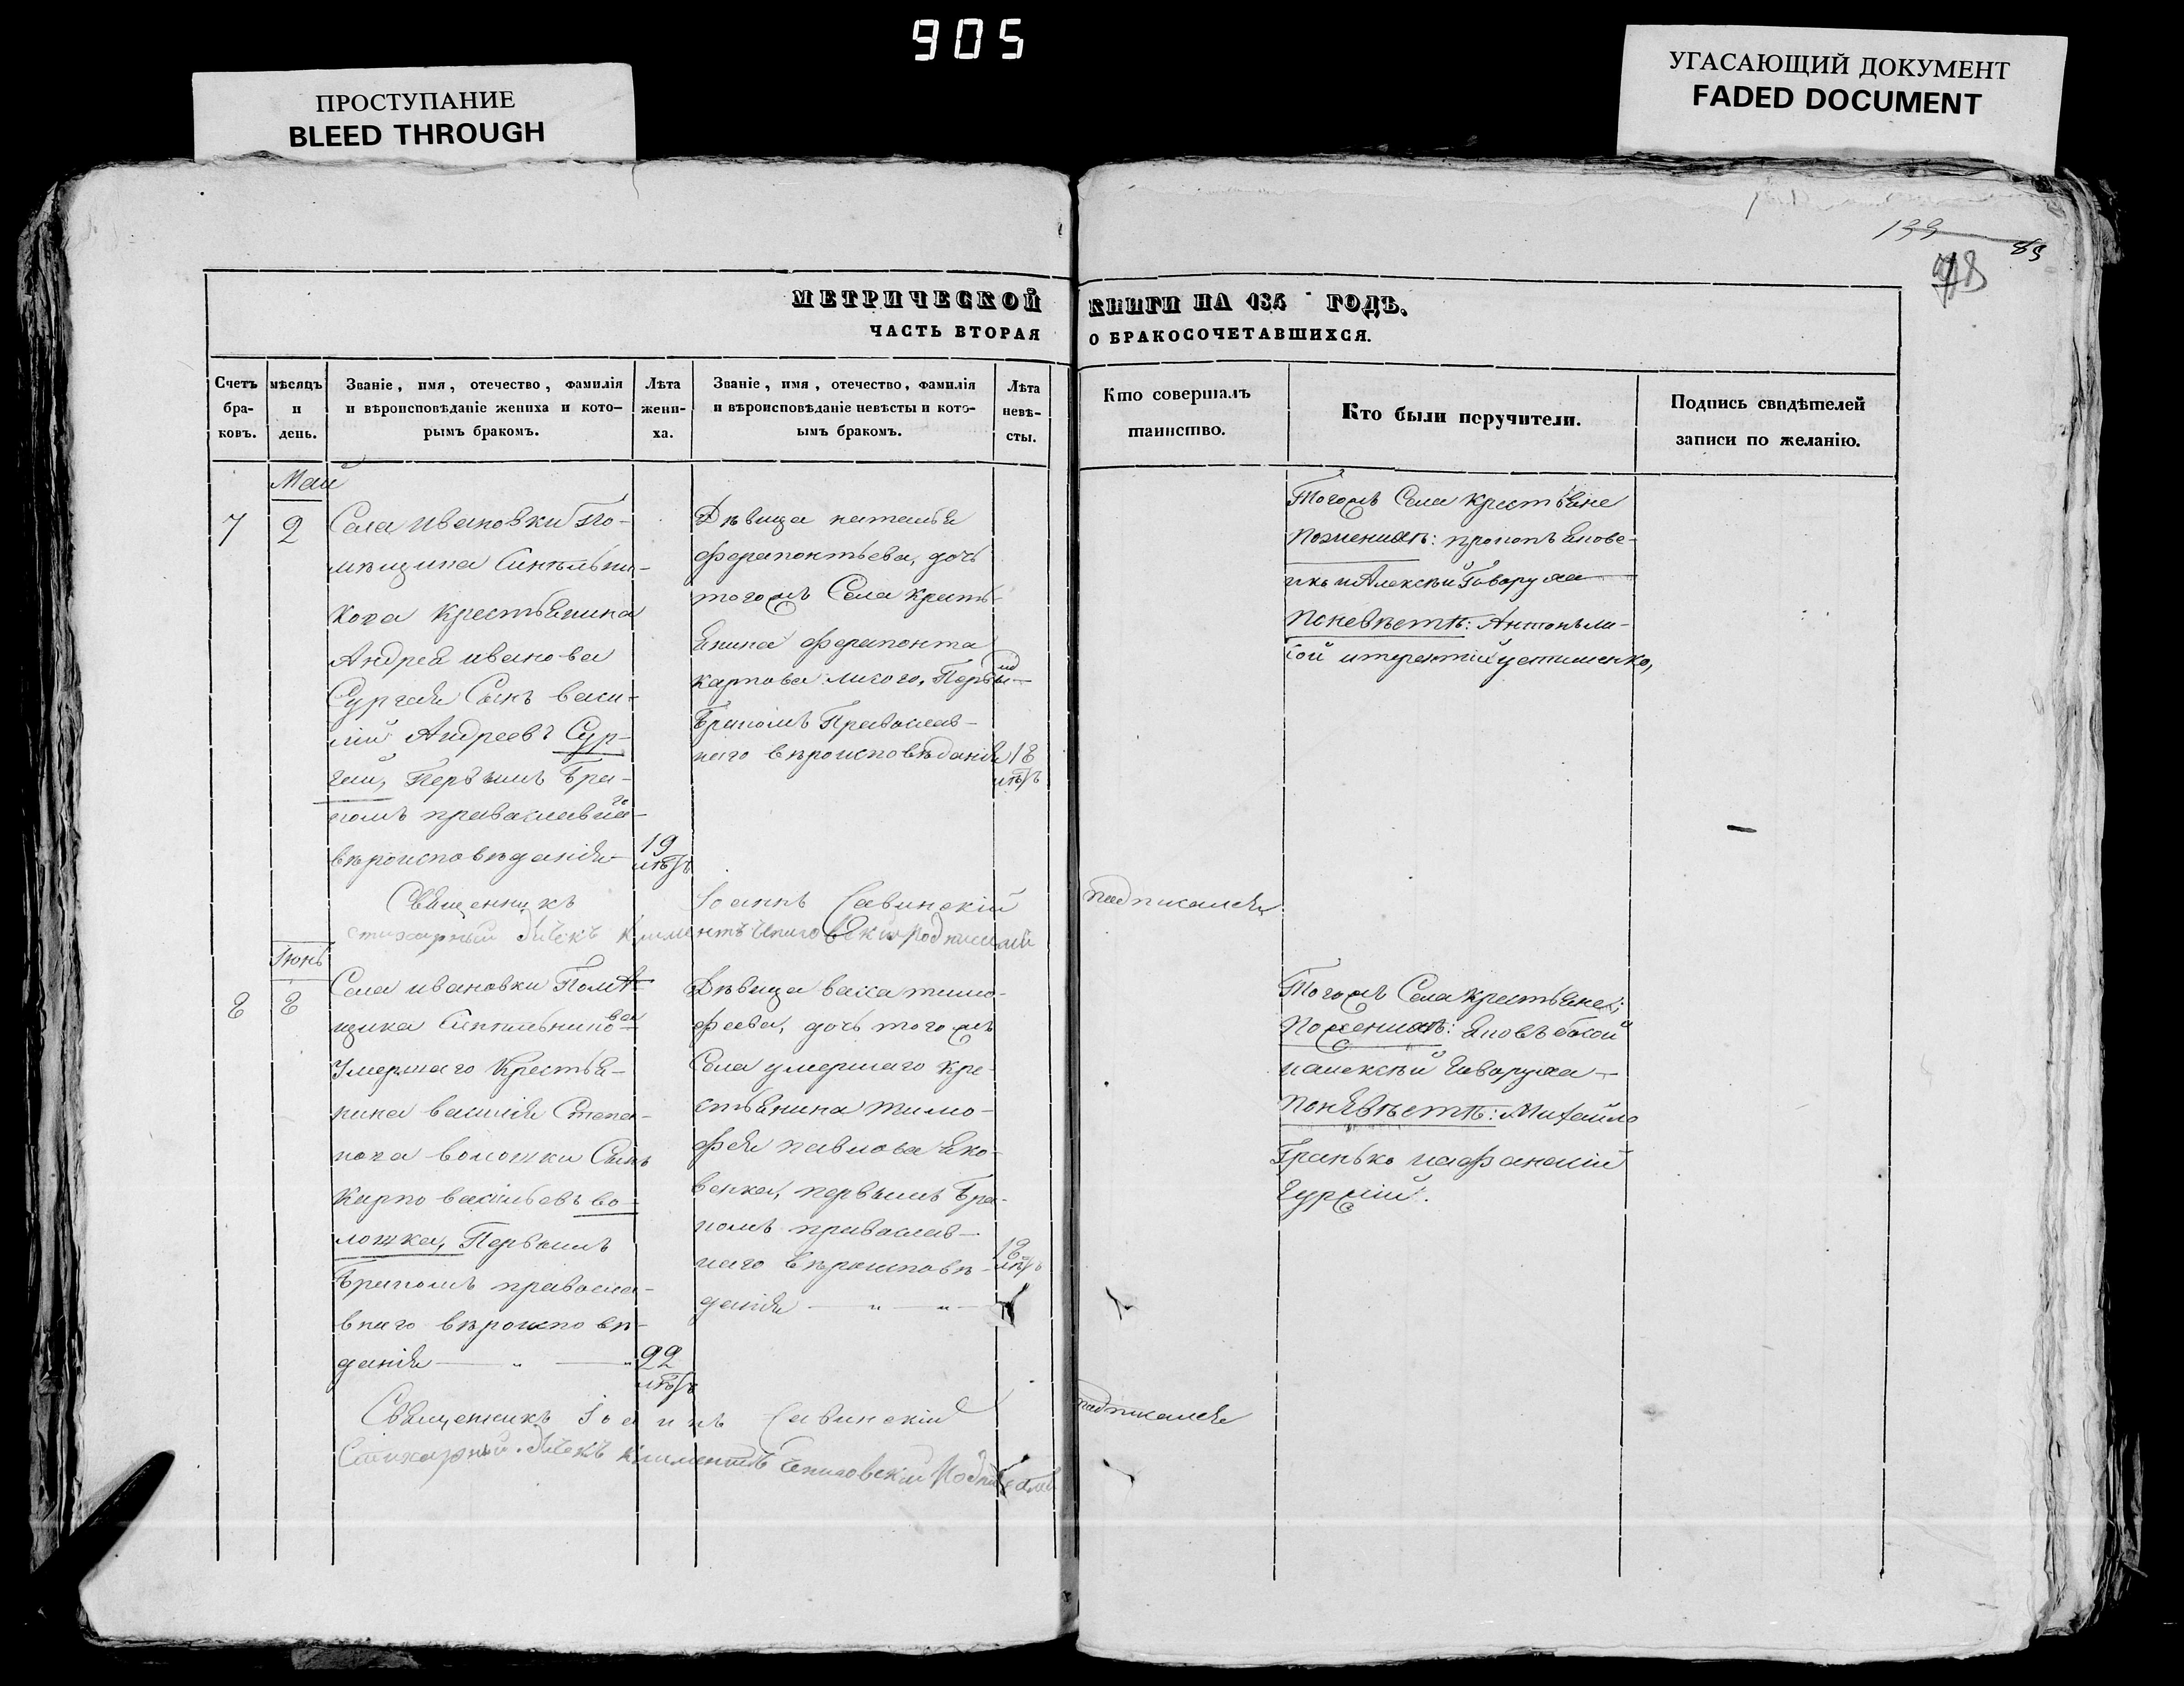 905
ПРОСТУПАНИЕ
BLEED THROUGH
УГАСАЮЩИЙ ДОКУМЕНТ
FADED DOCUMENT
139
85
78
МЕТРИЧЕСКОЙ КНИГИ НА 185 ГОДЪ.
ЧАСТЬ ВТОРАЯ О БРАКОСОЧЕТАВШИХСЯ.
Счетъ
бра-
ковъ.
мѣсяцъ
и
день.
Званіе, имя, отечество, фамилія
и вѣроисповѣданіе жениха и кото-
рымъ бракомъ.
Лѣта
жени-
ха.
Званіе, имя, отечество, фамилія
и вѣроисповѣданіе невѣсты и кото-
ымъ бракомъ.
Лѣта
невѣ-
сты.
Кто совершалъ
таинство.
Кто были поручители.
Подпись свидѣтелей
записи по желанію.
Май
7
2
Села Ивановки По-
мѣщика Синѣльни-
кова Крестьянина
Андрея иванова
Сургая Сынъ васи-
лій Андреевъ Сур-
гай, Первымъ бра-
комъ православнаго
вѣроисповѣданія
19
лѣтъ
Дѣвица наталья
ферапонтьева, дочь
тогожъ Села кресть-
янина ферапонта
карпова лисого, Первым
бракомъ Православ-
наго вѣроисповѣданія
18
лѣтъ
Тогожъ Села крестьяне
Поженихѣ:
и Алексѣй Говоруха
Поневѣстѣ: Антонъ ли-
сой итерентій устименко,
Священникъ Іоаннъ Савинскій подписался
стихарный Дячекъ Климентъ подписалъ
Іюнь
8
8
Села ивановки Помѣ-
щика Синѣльникова
Умершаго Крестья-
нина василія Степа-
нова волошки Сынъ
Карпо васильевъ во-
лошка, Первымъ
бракомъ правосла-
внаго вѣроисповѣ-
данія
22
лѣтъ
Дѣвица васса тимо-
феева, дочь тогожъ
Села умершаго кре-
стьянина тимо-
фея павлова Яко-
венка, первымъ бра-
комъ православ-
наго вѣроисповѣ-
данія
18
лѣтъ
Тогожъ Села крестьяне:
Поженихѣ: Яковъ босой
иалексѣй Говоруха
Поневѣстѣ: Михайло
Гранько иафанасій
Сургай.
Священникъ Іоаннъ Савинскій подписался
Стихарный Дячекъ Климентъ Подписалъ